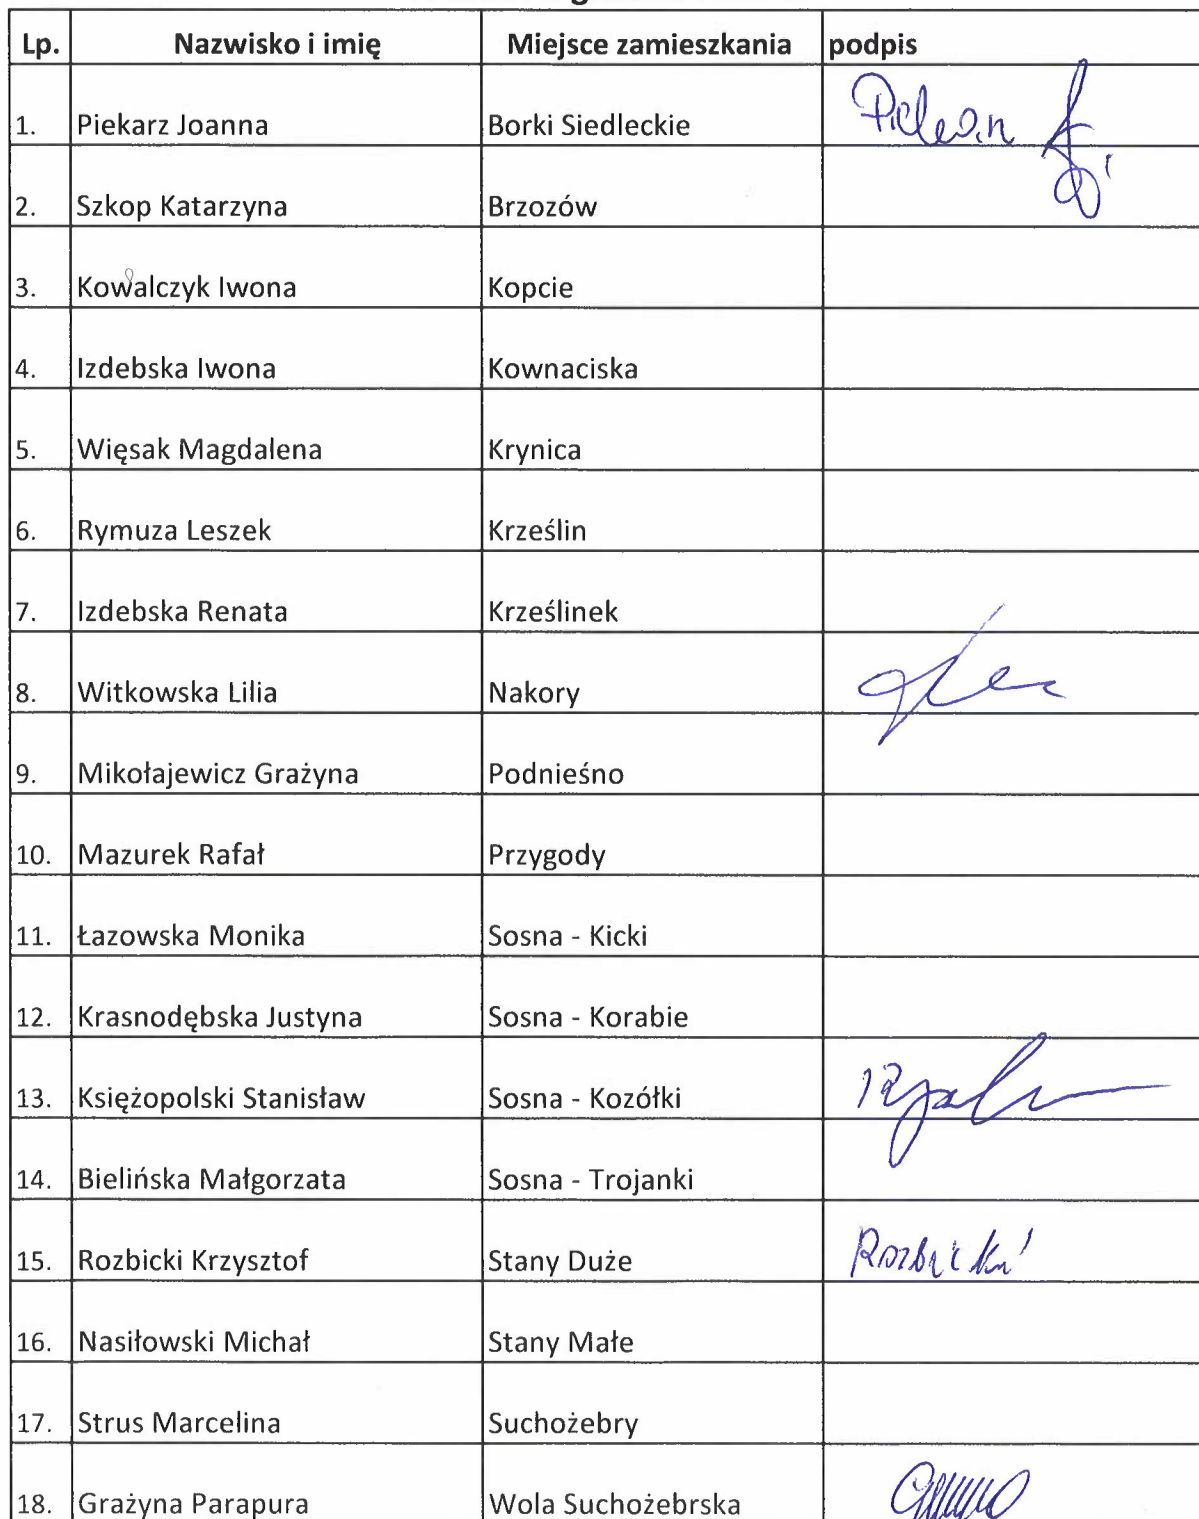 Lp. Nazwisko i imię Miejsce zamieszkania podpis
1. Piekarz Joanna Borki Siedleckie
2. Szkop Katarzyna Brzozów
3. Kowalczyk Iwona Kopcie
4. Izdebska Iwona Kownaciska
5. Więsak Magdalena Krynica
6. Rymuza Leszek Krześlin
7. Izdebska Renata Krześlinek
8. Witkowska Lilia Nakory
9. Mikołajewicz Grażyna Podnieśno
10. Mazurek Rafał Przygody
11. Łazowska Monika Sosna - Kicki
12. Krasnodębska Justyna Sosna - Korabie
13. Księżopolski Stanisław Sosna - Kozółki
14. Bielińska Małgorzata Sosna - Trojanki
15. Rozbicki Krzysztof Stany Duże Rozbicki
16. Nasiłowski Michał Stany Małe
17. Strus Marcelina Suchożebry
18. Grażyna Parapura Wola Suchożebrska